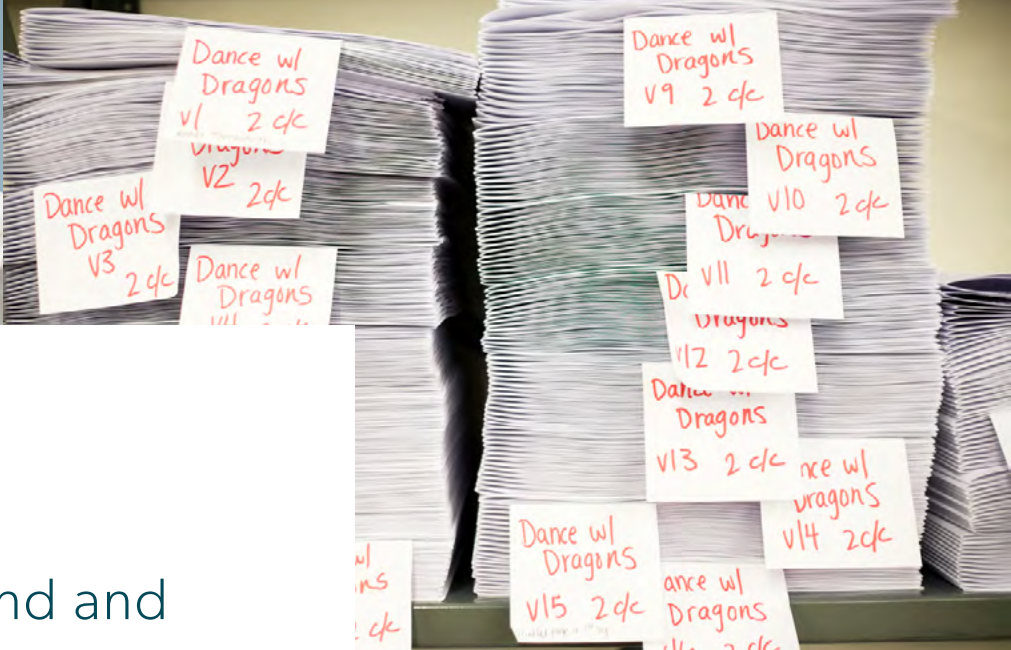 Dance w/
Dragons
V1 2 c/c
Dragons
V2
2 c/c
Dance w/
Dragons
V3
2 c/c
Dance w/
Dragons
Dance w/
Dragons
V9 2 c/c
Dance w/
Dragons
V10 2 c/c
V11 2 c/c
Dragons
V12 2 c/c
Dragons
V13 2 c/c
nce w/
Dragons
V14 2 c/c
Dance w/
Dragons
V15 2 c/c
ance w/
Dragons
c/c
nd and